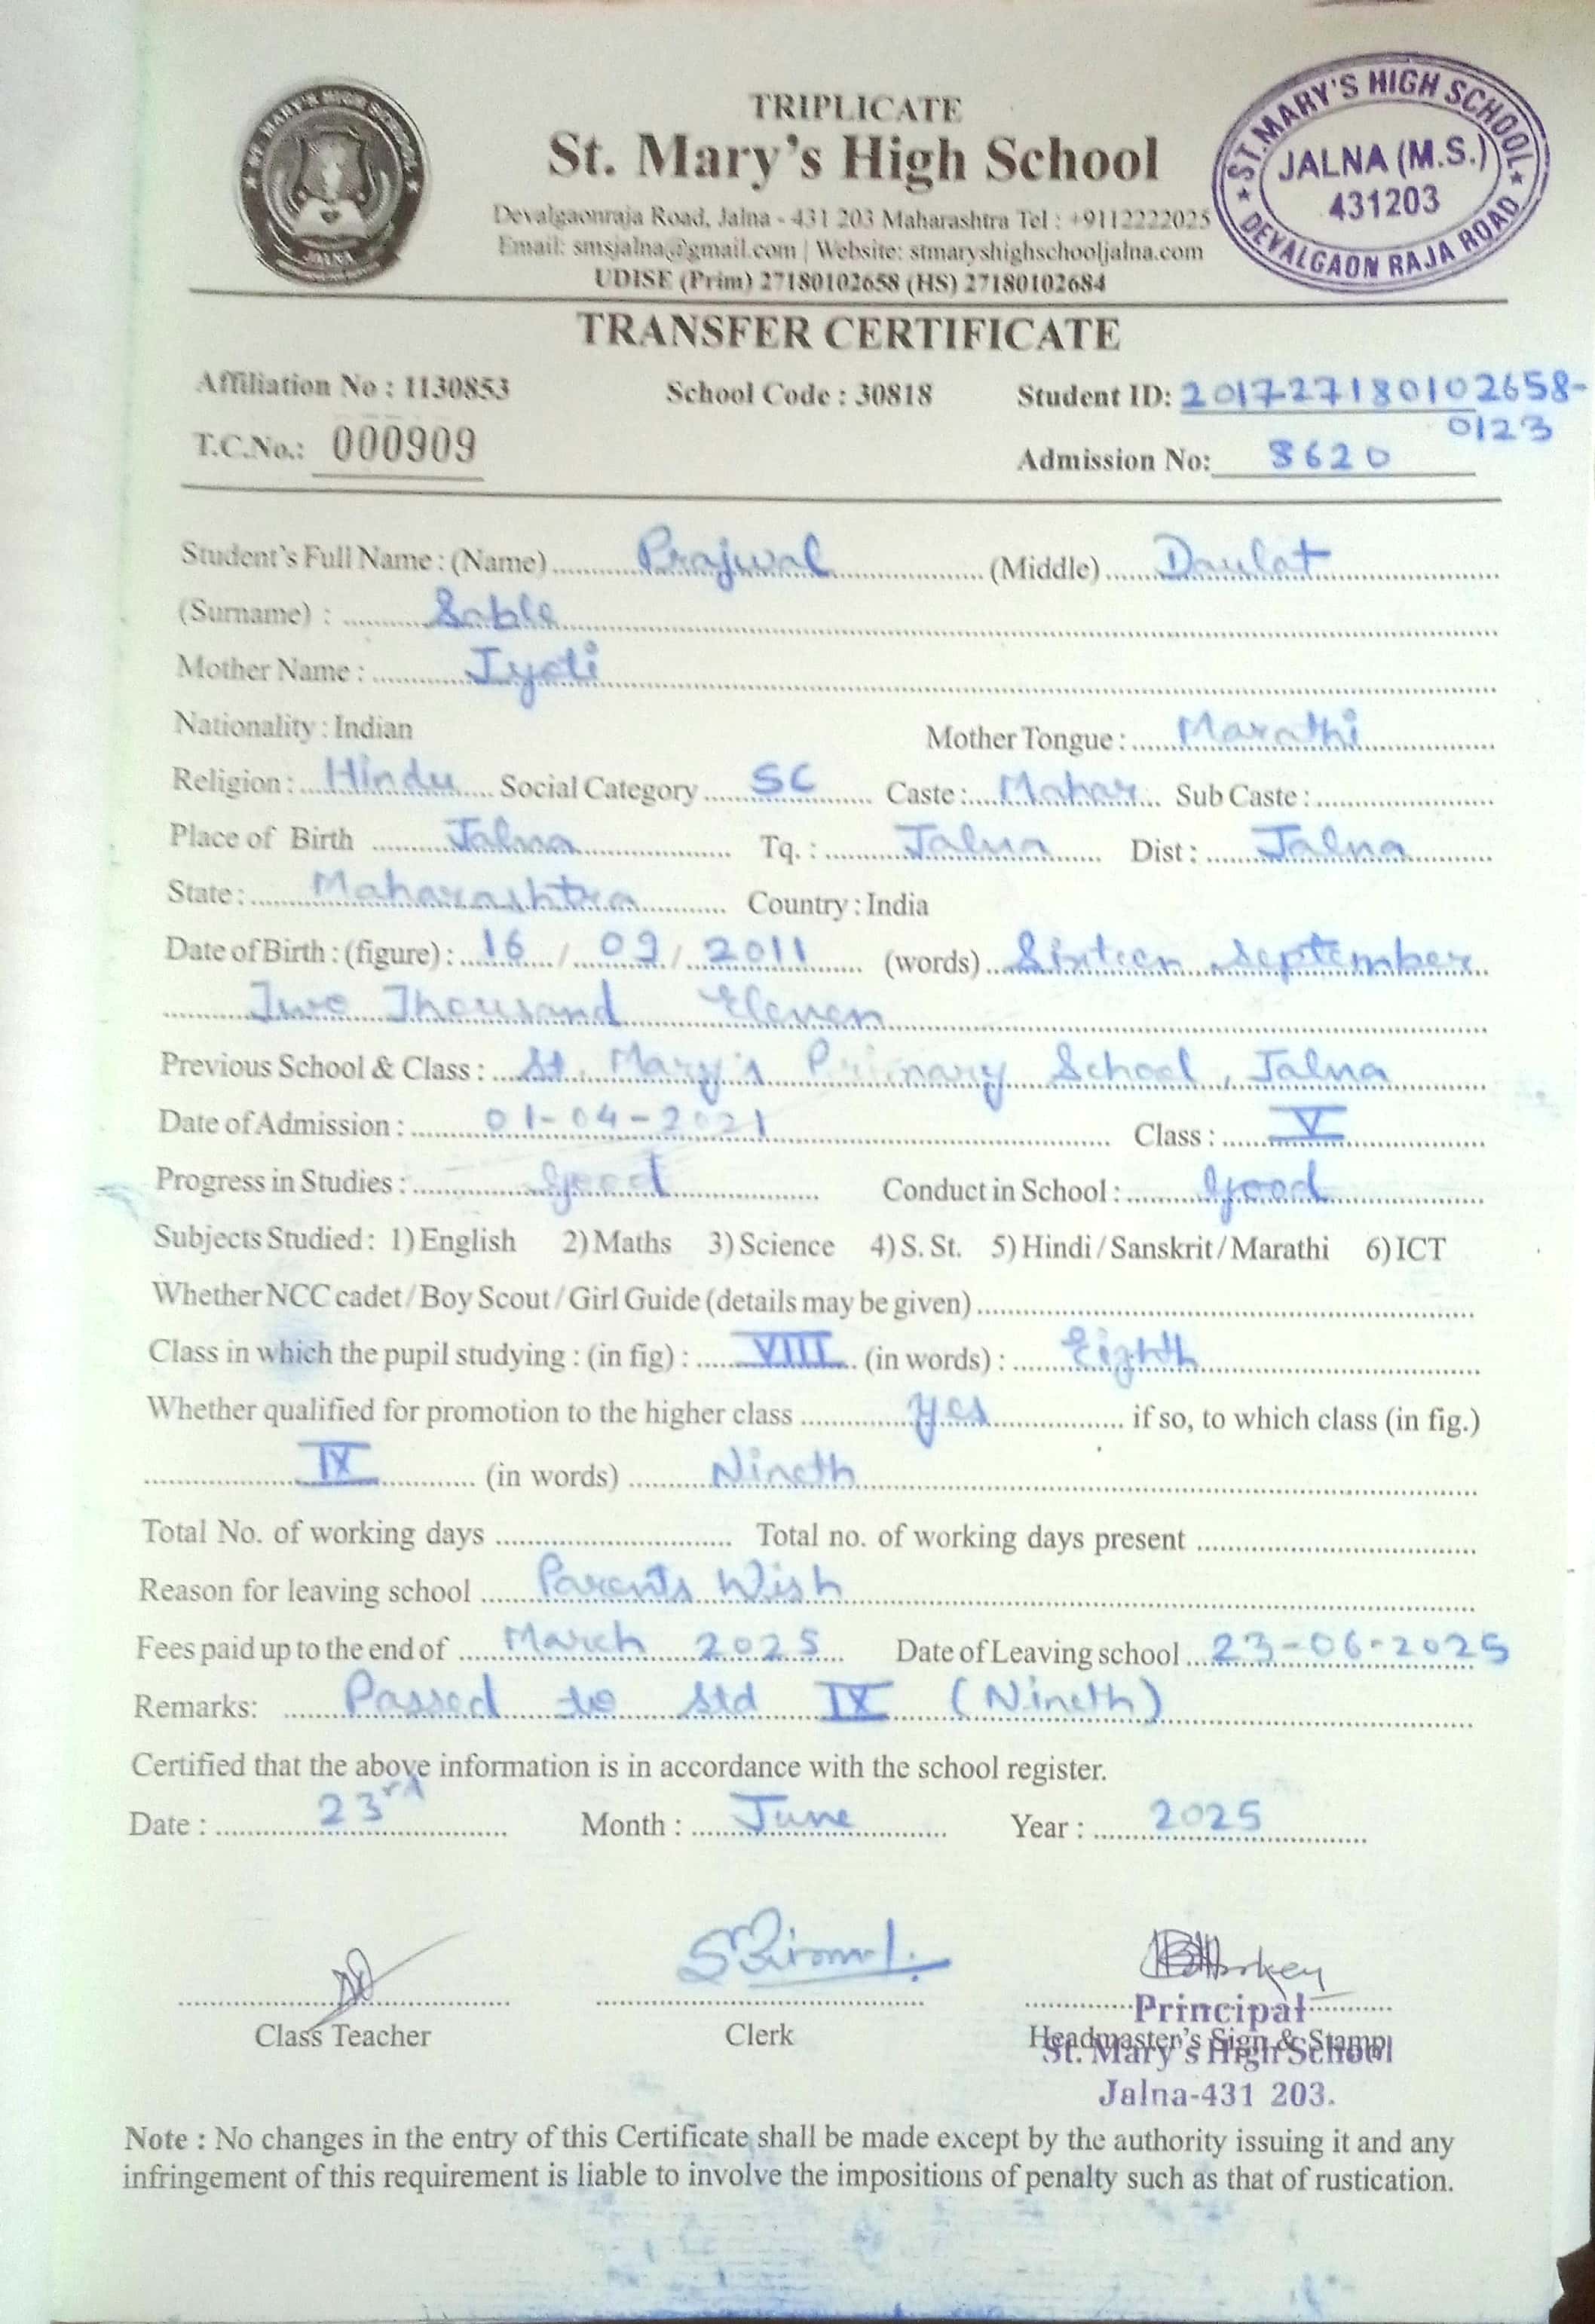 TRIPLICATE
St. Mary's High School
Devalgaonraja Road, Jalna - 431 203 Maharashtra Tel : +9112222025
Email: smsjalna@gmail.com | Website: stmaryshighschooljalna.com
UDISE (Prim) 27180102658 (HS) 27180102684
ST. MARY'S HIGH SCHOOL
JALNA
ST. MARY'S HIGH SCHOOL
JALNA (M.S.)
431203
DEVALGAON RAJA ROAD
TRANSFER CERTIFICATE
Affiliation No : 1130853 School Code : 30818 Student ID: 201727180102658-
0123
T.C.No.: 000909 Admission No: 8620
Student's Full Name : (Name) Prajwal (Middle) Daulat
(Surname) : Sable
Mother Name : Jyoti
Nationality : Indian Mother Tongue : Marathi
Religion : Hindu Social Category SC Caste : Mahar Sub Caste :
Place of Birth Jalna Tq. : Jalna Dist : Jalna
State : Maharashtra Country : India
Date of Birth : (figure) : 16 / 09 / 2011 (words) Sixteen September
Two Thousand Eleven
Previous School & Class : St. Mary's Primary School, Jalna
Date of Admission : 01-04-2021 Class : V
Progress in Studies : Good Conduct in School : Good
Subjects Studied : 1) English 2) Maths 3) Science 4) S. St. 5) Hindi / Sanskrit / Marathi 6) ICT
Whether NCC cadet / Boy Scout / Girl Guide (details may be given)
Class in which the pupil studying : (in fig) : VIII (in words) : Eighth
Whether qualified for promotion to the higher class yes if so, to which class (in fig.)
IX (in words) Nineth
Total No. of working days Total no. of working days present
Reason for leaving school Parents Wish
Fees paid up to the end of March 2025 Date of Leaving school 23-06-2025
Remarks: Passed to Std IX (Nineth)
Certified that the above information is in accordance with the school register.
Date : 23rd Month : June Year : 2025
Class Teacher Clerk Headmaster's Sign & Stamp
Principal
St. Mary's High School
Jalna-431 203.
Note : No changes in the entry of this Certificate shall be made except by the authority issuing it and any
infringement of this requirement is liable to involve the impositions of penalty such as that of rustication.